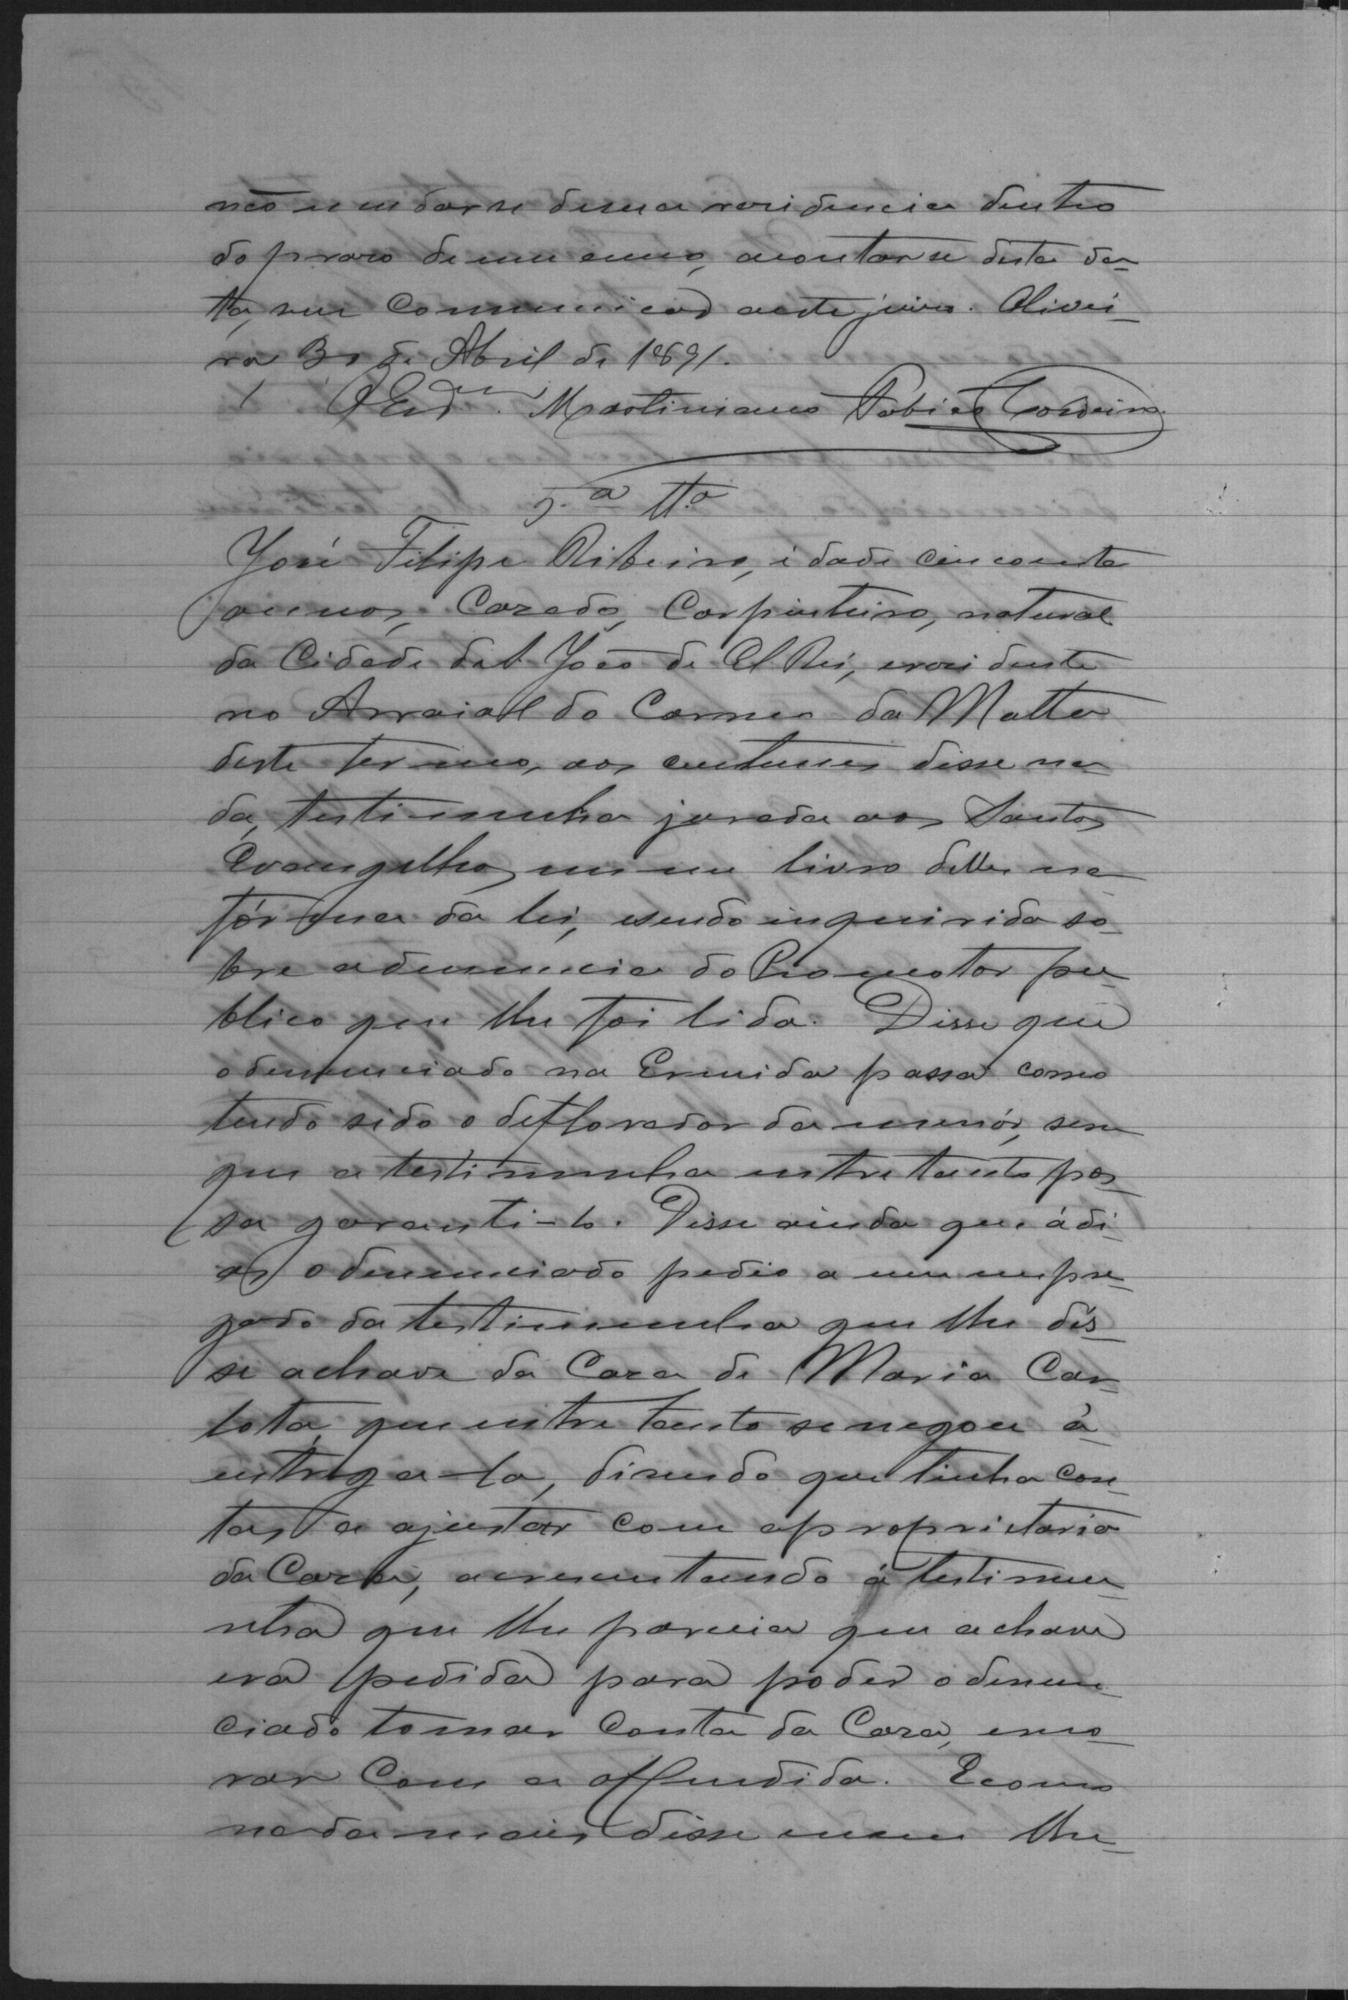 não mudarse desua residencia dentro
do praso de um anno, acontarse desta da-
ta, sem communicar aeste juizo. Olivei-
ra 30 de Abril de 1891.
O Escrm. Martiniano Tobias Cordeiro
5.a tt.a
José Filipe Ribeiro, idade cincoenta
annos, Cazado, Carpinteiro, natural
da Cidade de S. João de El Rei, erezidente
no Arraial do Carmo da Matta
deste termo, aos custumes disse na-
da, testimunha jurada aos Santos
Evangelhos em um livro delles na
fórma da lei, esendo inquirida so-
bre adenuncia do Promotor pu-
blico que lhe foi lida. Disse que
odenunciado na Ermida passa como
tendo sido o deflorador da menór, sem
que a testimunha entretanto pos-
sa garanti-lo. Disse ainda que ádi-
as odenunciado pedio a um empre-
gado da testimunha que lhe dés-
se achave da Caza de Maria Car-
lota, que entre tanto senegou à
entrega-la, disendo que tinha con-
tas a ajustar com aproprietaria
da Caza, acrescentando á testimu-
nha que lhe parecia que achave
era pedida para poder odenun-
ciado tomar Conta da Caza, emo-
rar Com a offendida. Ecomo
nada mais disse nem lhe